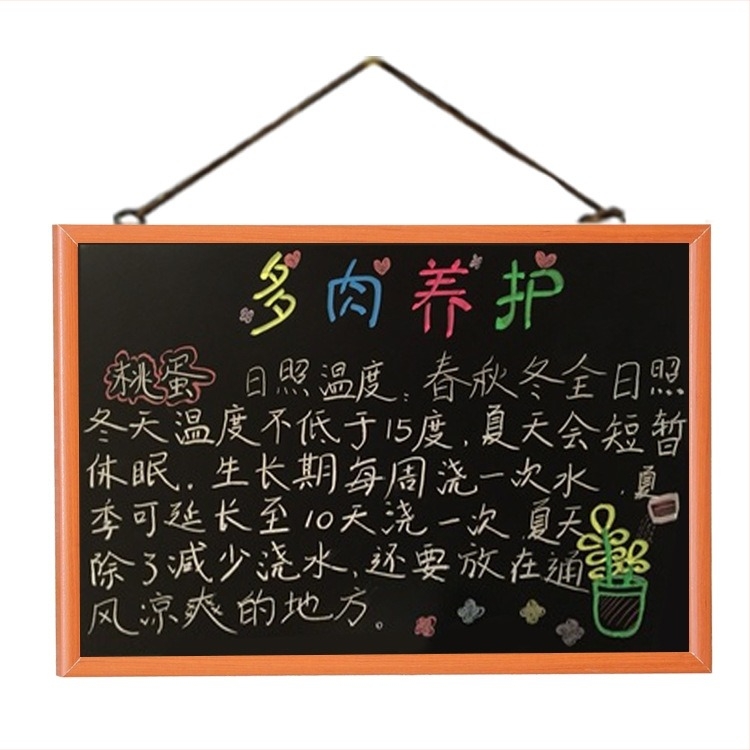 多肉养护
桃蛋 日照温度:春秋冬全日照
冬天温度不低于15度,夏天会短暂
休眠.生长期每周浇一次水,夏
季可延长至10天浇一次,夏天
除了减少浇水,还要放在通
风凉爽的地方。